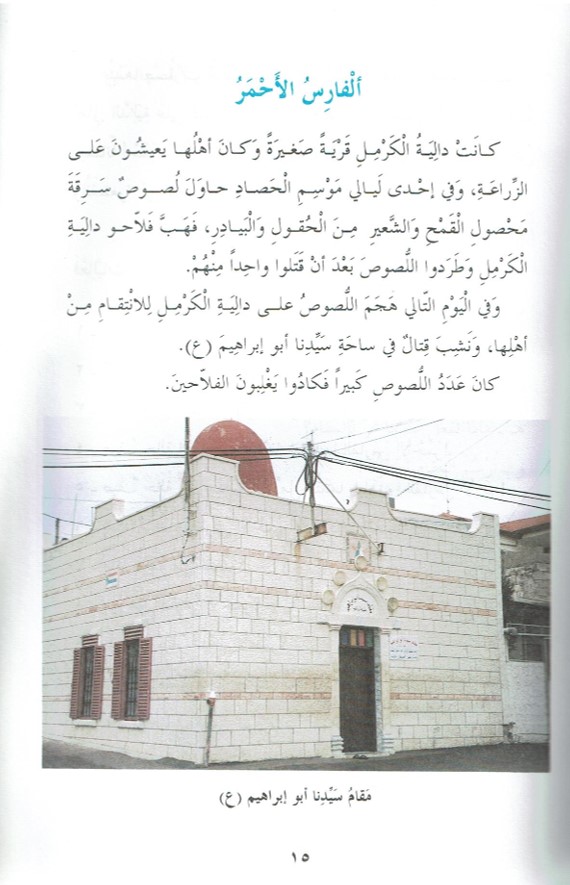 ألْفارِسُ الأَحْمَرُ
كـانَتْ دالِيَـةُ الْكَرْمِـلِ قَرْيَـةً صَغيـرَةً وَكـانَ أهْلُـهـا يَعيشُـونَ عَلـى
الزِّراعَـةِ، وَفي إحْـدى لَيـالي مَوْسِـمِ الْحَصادِ حـاوَلَ لُصـوصٌ سَـرِقَةَ
مَحْصولِ الْقَمْحِ وَالشَّعيرِ مِـنَ الْحُقولِ وَالْبَيـادِرِ، فَهَبَّ فَلاّحـو دالِيَـةِ
الْكَرْمِلِ وَطَرَدوا اللُّصوصَ بَعْدَ أنْ قَتَلوا واحِداً مِنْهُمْ.
وَفي الْيَوْمِ التّالي هَجَمَ اللُّصوصُ علـى دالِيَـةِ الْكَرْمِـلِ لِلانْتِقـامِ مِـنْ
أهْلِها، وَنَشِبَ قِتالٌ في ساحَةِ سَيِّدِنا أبو إبراهِيمَ (ع).
كانَ عَدَدُ اللُّصوصِ كَبيراً فَكادُوا يَغْلِبونَ الفلاّحينَ.
مَقامُ سَيِّدِنا أبو إبراهيم (ع)
١٥